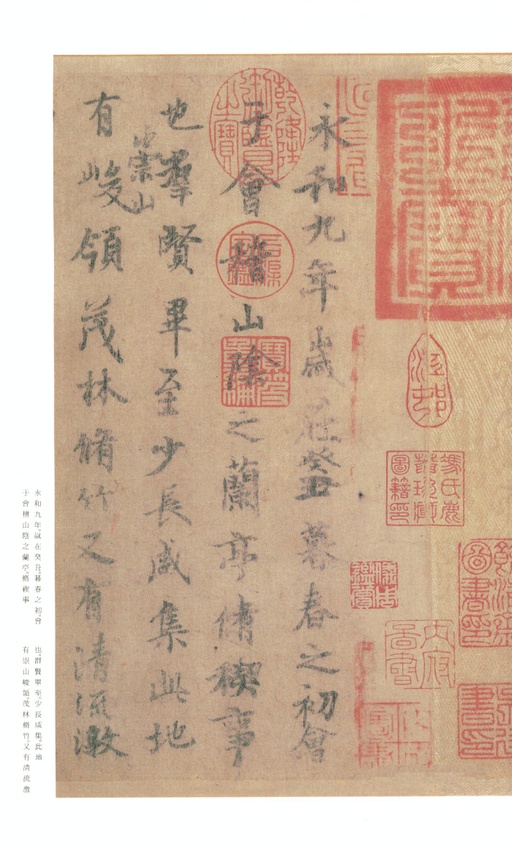 永和九年歲在癸丑暮春之初會
于會稽山陰之蘭亭脩禊事
也羣賢畢至少長咸集此地
有崇山峻領茂林脩竹又有清流激
永和九年歲在癸丑暮春之初會
于會稽山陰之蘭亭脩禊事
也群賢畢至少長咸集此地
有崇山峻領茂林脩竹又有清流激